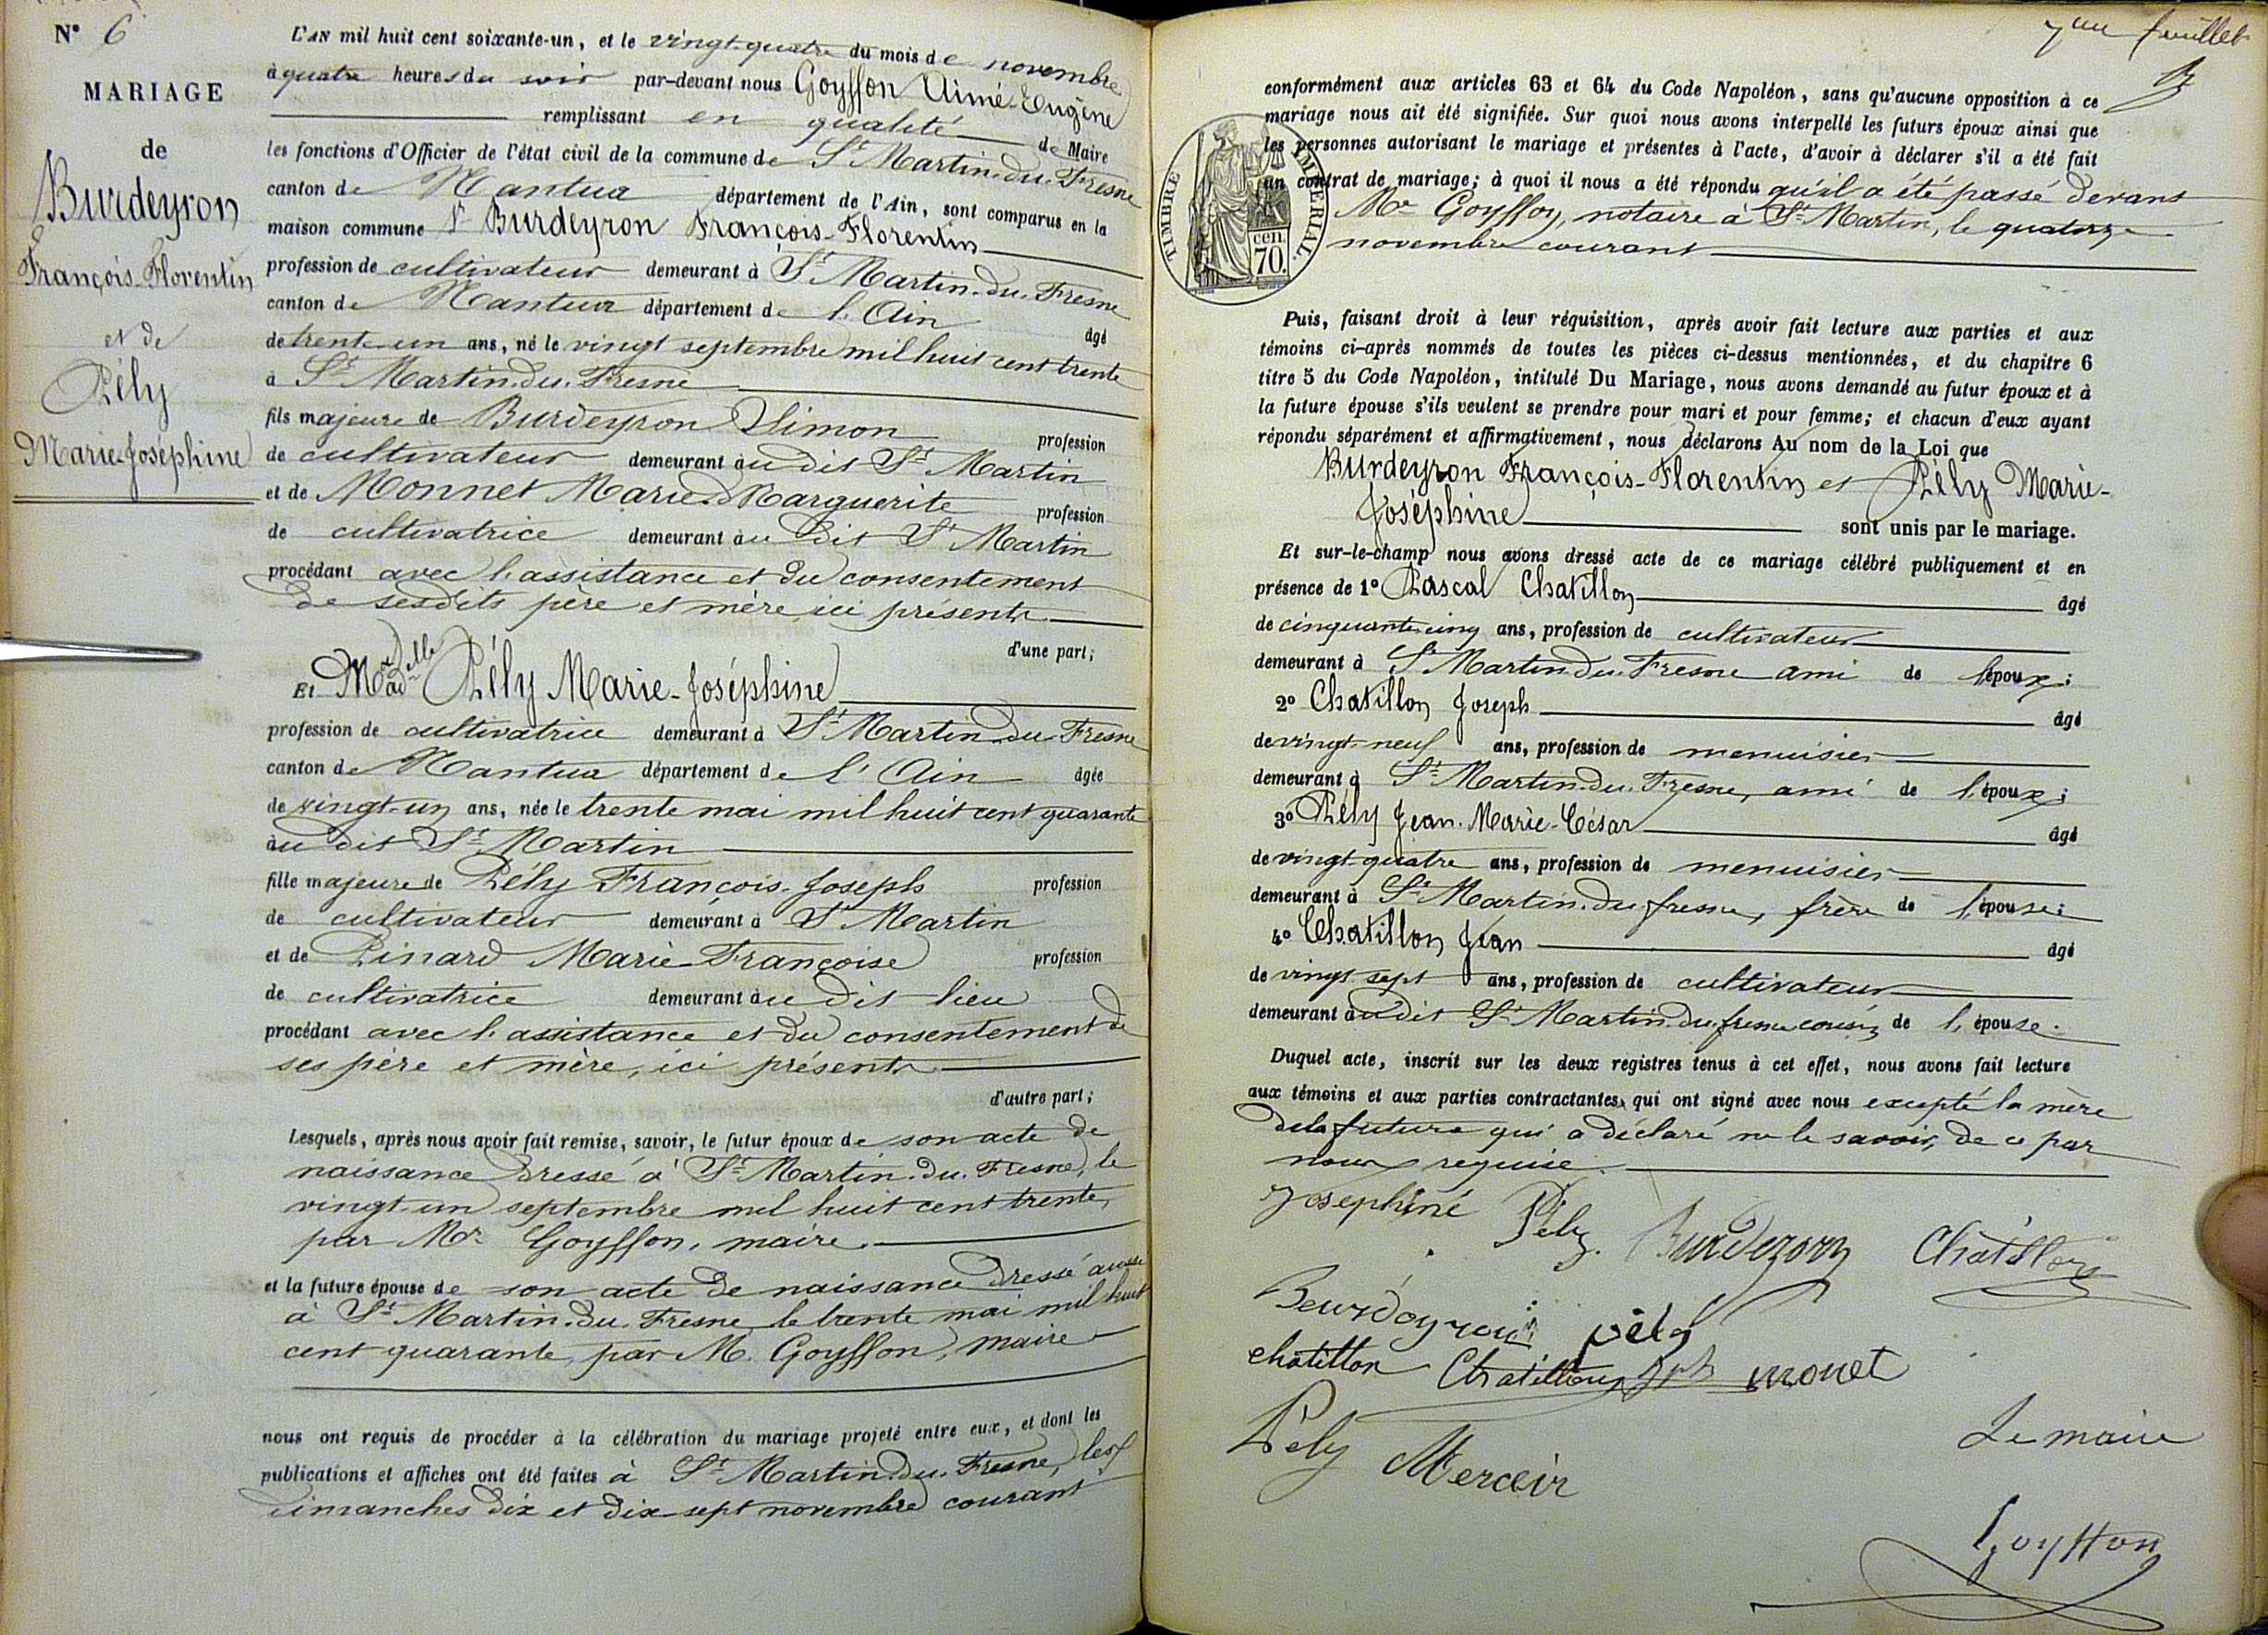 N° 6
MARIAGE
de
Burdeyron
François-Florentin
et de
Pély
Marie-Joséphine
L'AN mil huit cent soixante-un, et le vingt-quatre du mois de novembre
à quatre heures du soir par-devant nous Goyffon Aimé-Eugène
remplissant en qualité de Maire
les fonctions d'Officier de l'état civil de la commune de St Martin-du-Fresne
canton de Nantua département de l'Ain, sont comparus en la
maison commune Sr Burdeyron François-Florentin
profession de cultivateur demeurant à St Martin-du-Fresne
canton de Nantua département de l'Ain âgé
de trente-un ans, né le vingt septembre mil huit cent trente
à St Martin-du-Fresne
fils majeur de Burdeyron Simon profession
de cultivateur demeurant au dit St Martin
et de Monnet Marie Marguerite profession
de cultivatrice demeurant au dit St Martin
procédant avec l'assistance et du consentement
de sesdits père et mère, ici présents
d'une part;
Et Madelle Pély Marie-Joséphine
profession de cultivatrice demeurant à St Martin-du-Fresne
canton de Nantua département de l'Ain âgée
de vingt-un ans, née le trente mai mil huit cent quarante
au dit St Martin
fille majeure de Pély François-Joseph profession
de cultivateur demeurant à St Martin
et de Pinard Marie-Françoise profession
de cultivatrice demeurant au dit lieu
procédant avec l'assistance et du consentement de
ses père et mère, ici présents
d'autre part;
Lesquels, après nous avoir fait remise, savoir, le futur époux de son acte de
naissance dressé à St Martin-du-Fresne, le
vingt-un septembre mil huit cent trente,
par Mr Goyffon, maire.
et la future épouse de son acte de naissance dressé aussi
à St Martin-du-Fresne le trente mai mil huit
cent quarante, par M. Goyffon, maire
nous ont requis de procéder à la célébration du mariage projeté entre eux, et dont les
publications et affiches ont été faites à St Martin-du-Fresne, les
dimanches dix et dix-sept novembre courant
7me feuillet
conformément aux articles 63 et 64 du Code Napoléon, sans qu'aucune opposition à ce
mariage nous ait été signifiée. Sur quoi nous avons interpellé les futurs époux ainsi que
les personnes autorisant le mariage et présentes à l'acte, d'avoir à déclarer s'il a été fait
un contrat de mariage; à quoi il nous a été répondu qu'il a été passé devant
Me Goyffon, notaire à St Martin, le quatorze
novembre courant
TIMBRE IMPÉRIAL.
cen.
70.
Puis, faisant droit à leur réquisition, après avoir fait lecture aux parties et aux
témoins ci-après nommés de toutes les pièces ci-dessus mentionnées, et du chapitre 6
titre 5 du Code Napoléon, intitulé Du Mariage, nous avons demandé au futur époux et à
la future épouse s'ils veulent se prendre pour mari et pour femme; et chacun d'eux ayant
répondu séparément et affirmativement, nous déclarons Au nom de la Loi que
Burdeyron François-Florentin et Pély Marie-
Joséphine sont unis par le mariage.
Et sur-le-champ nous avons dressé acte de ce mariage célébré publiquement et en
présence de 1° Pascal Chatillon âgé
de cinquante-cinq ans, profession de cultivateur
demeurant à St Martin-du-Fresne ami de l'époux;
2° Chatillon Joseph âgé
de vingt-neuf ans, profession de menuisier
demeurant à St Martin-du-Fresne, ami de l'époux;
3° Pély Jean-Marie-César âgé
de vingt-quatre ans, profession de menuisier
demeurant à St Martin-du-fresne, frère de l'épouse;
4° Chatillon Jean âgé
de vingt-sept ans, profession de cultivateur
demeurant au dit St Martin-du-fresne cousin de l'épouse.
Duquel acte, inscrit sur les deux registres tenus à cet effet, nous avons fait lecture
aux témoins et aux parties contractantes qui ont signé avec nous excepté la mère
de la future qui a déclaré ne le savoir, de ce par
nous requise.
Josephine Pély. Burdezorn Châtillon
Beurdoyron pély
chatillon Chatillon Jph monet
Pély Mercier
Le maire
Goyffon